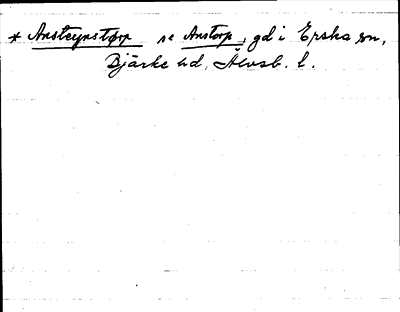 * Ansteynstorp se Anstorp, gd i Erska sn,
Bjärke hd, Älvsb. l.